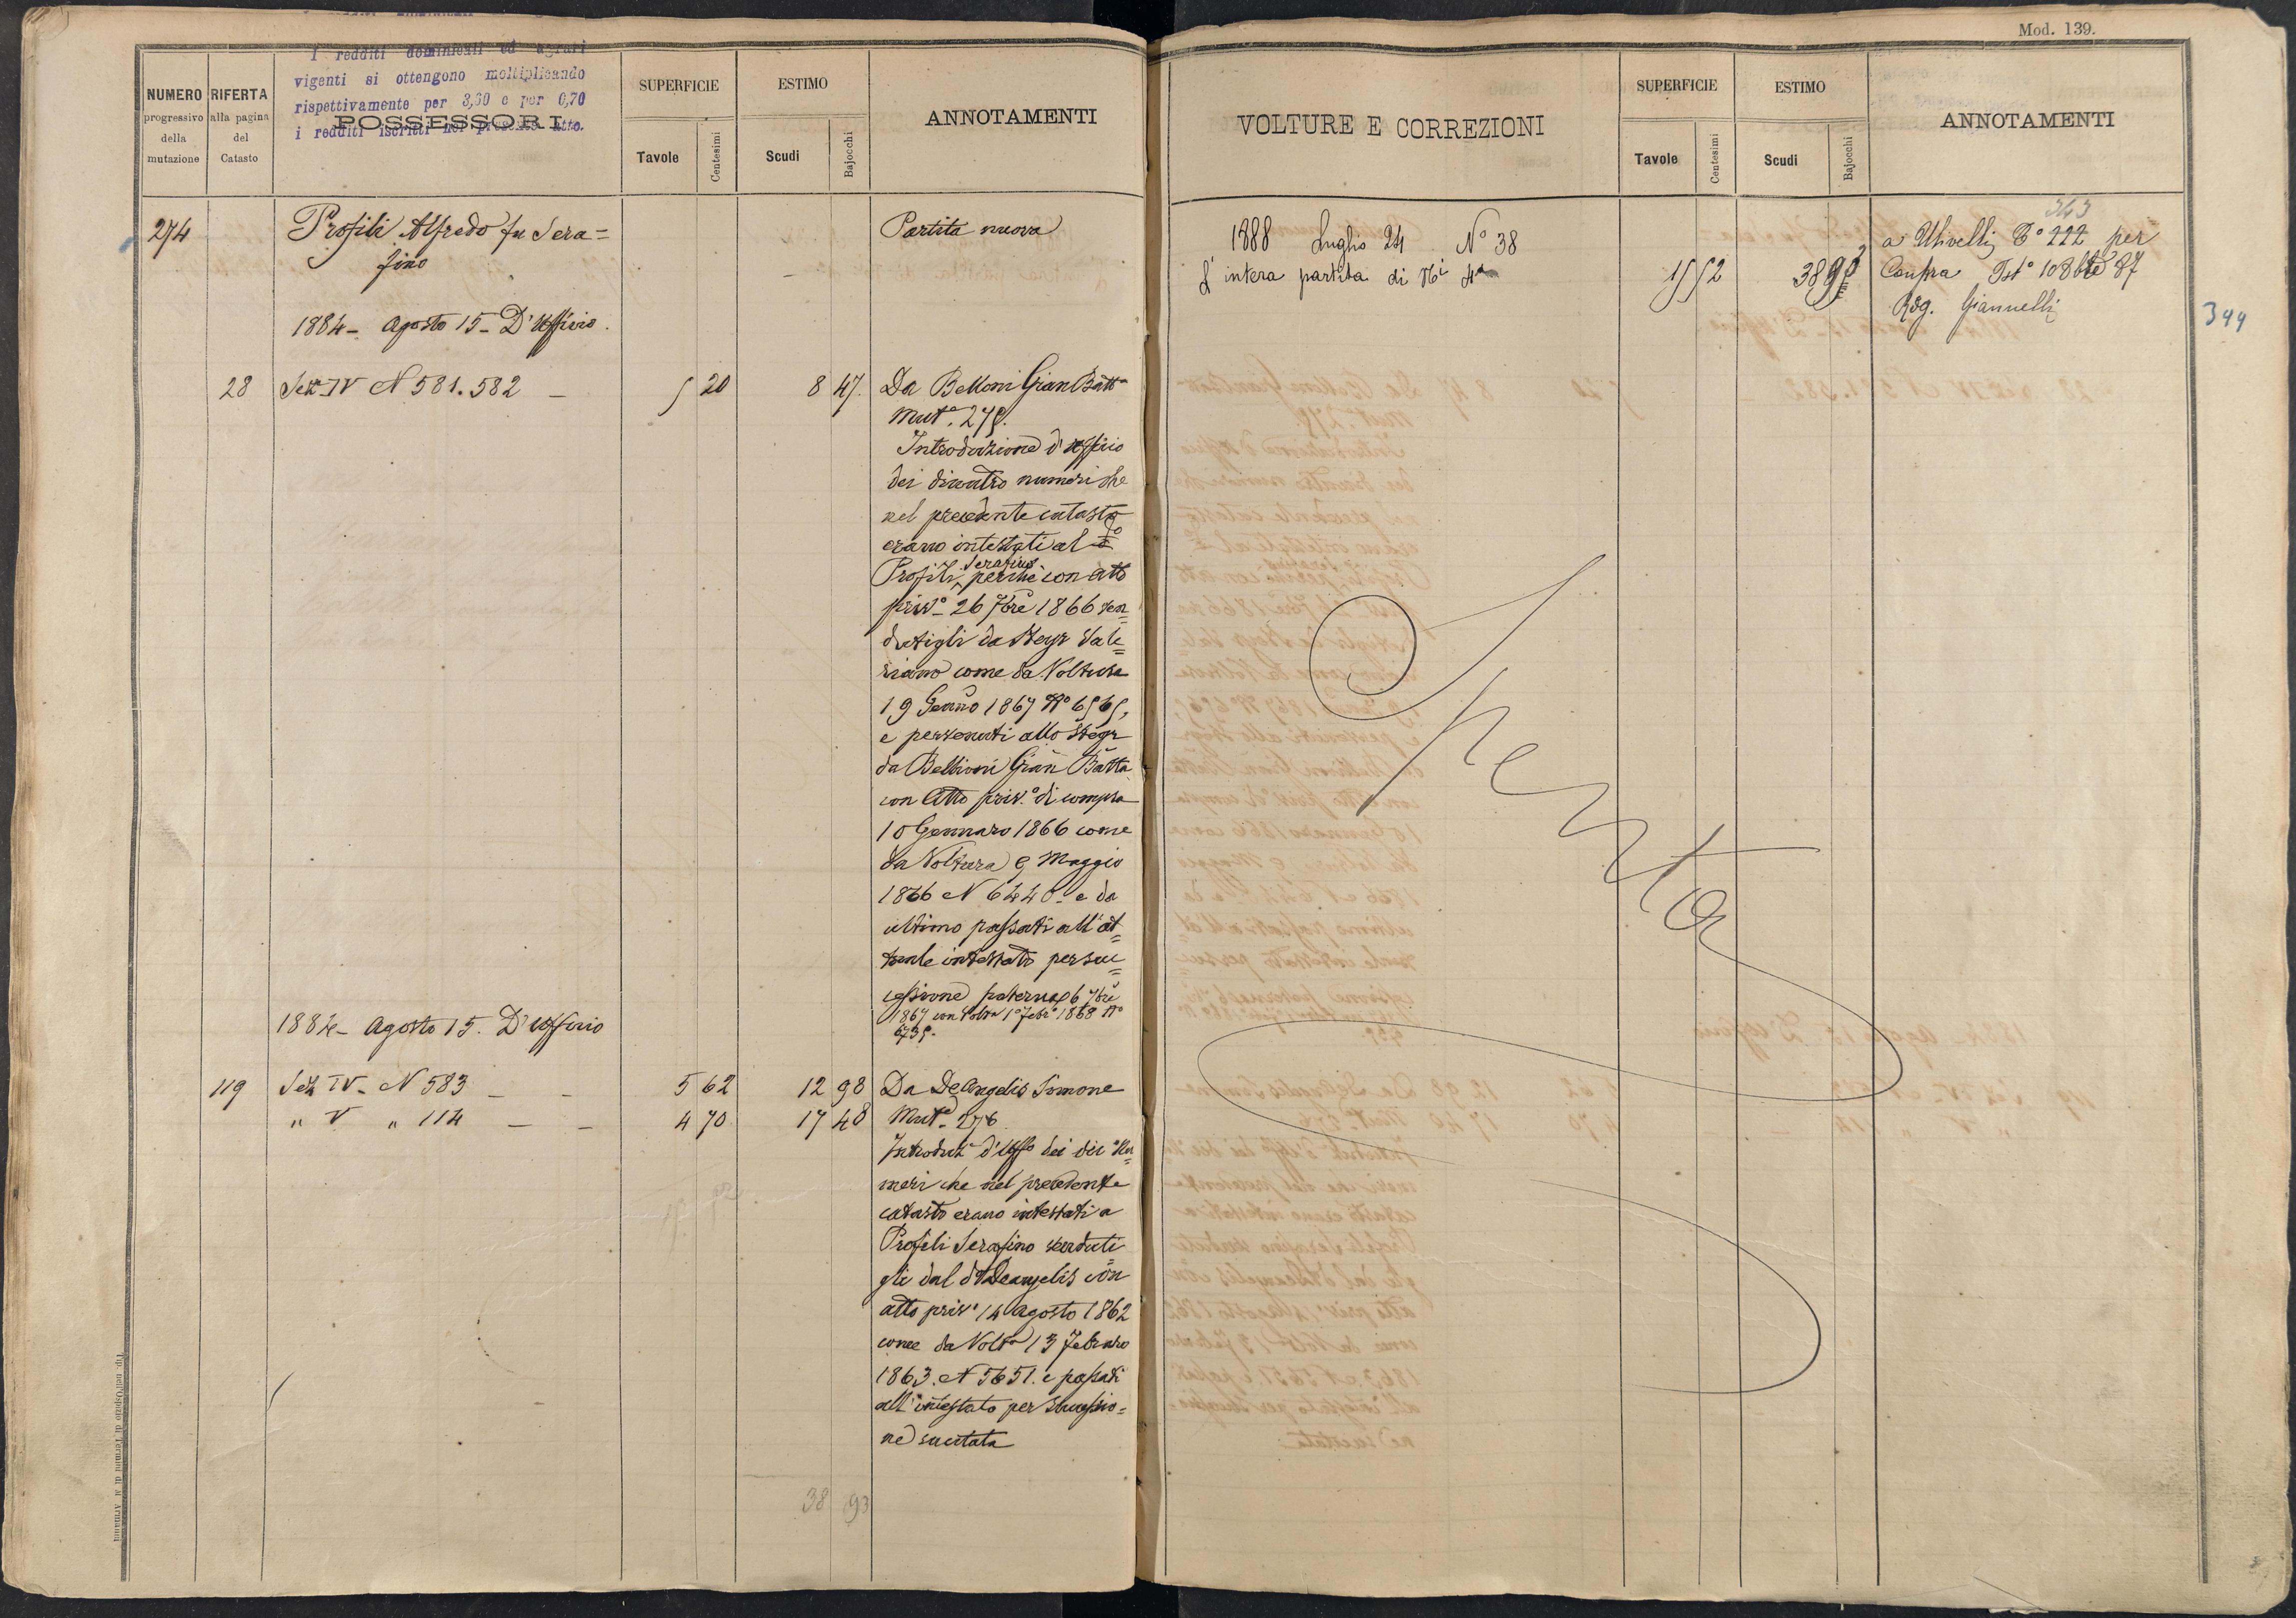 I redditi dominicali ed agrari
vigenti si ottengono moltiplicando
rispettivamente per 3,30 e per 0,70
i redditi iscritti nel presente atto.
NUMERO
progressivo
della
mutazione
RIFERTA
alla pagina
del
Catasto
POSSESSORI
SUPERFICIE
Tavole
Centesimi
ESTIMO
Scudi
Bajocchi
ANNOTAMENTI
274
Profili Alfredo fu Sera=
fino
Partita nuova
1884 - Agosto 15 - D'Ufficio.
28 Sez IV N 581. 582 — 5 20 8 47.
Da Belloni Gian Batta
Mut.e 275.
Introduzione d'ufficio
dei dicontro numeri che
nel precedente catasto
erano intestati al
Profili Serafino perchè con atto
priv.o 26 7bre 1866 ven=
dutigli da Stegr Vale=
riano come da Voltura
19 Genno 1867 No 6565,
e pervenuti allo Stegr
da Bellioni Gian Batta
con Atto priv.o di compra
10 Gennaro 1866 come
da Voltura 9 Maggio
1866 N 6440. e da
ultimo passati all'at=
tuale intestato per suc=
cessione paterna 6 7bre
1867 con Volta 1o Febr.o 1868 No
6735.
1884 - Agosto 15. D'Ufficio
119 Sez IV - N 583 — - 5 62 12 98
" V " 114 — - 4 70 17 48
Da DeAngelis Simone
Mut.e 276
Introduz.e d'Uffo dei dei Nu=
meri che nel precedente
catasto erano intestati a
Profili Serafino venduti
gli dal do Deangelis con
atto priv.o 14 Agosto 1862
come da Volta 13 Febraro
1863. N 5651. e passati
all'intestato per successio=
ne sucitata
38 93
Tip. nell'Ospizio di Termini di A. Armanni
Mod. 139.
VOLTURE E CORREZIONI
SUPERFICIE
Tavole
Centesimi
ESTIMO
Scudi
Bajocchi
ANNOTAMENTI
1888 Luglio 24 No 38
L'intera partita di Ni 4
15 52 38 93
343
a Ulivelli To 222 per
Compra Isto 108 87
Rog. Giannelli
344
Spenta